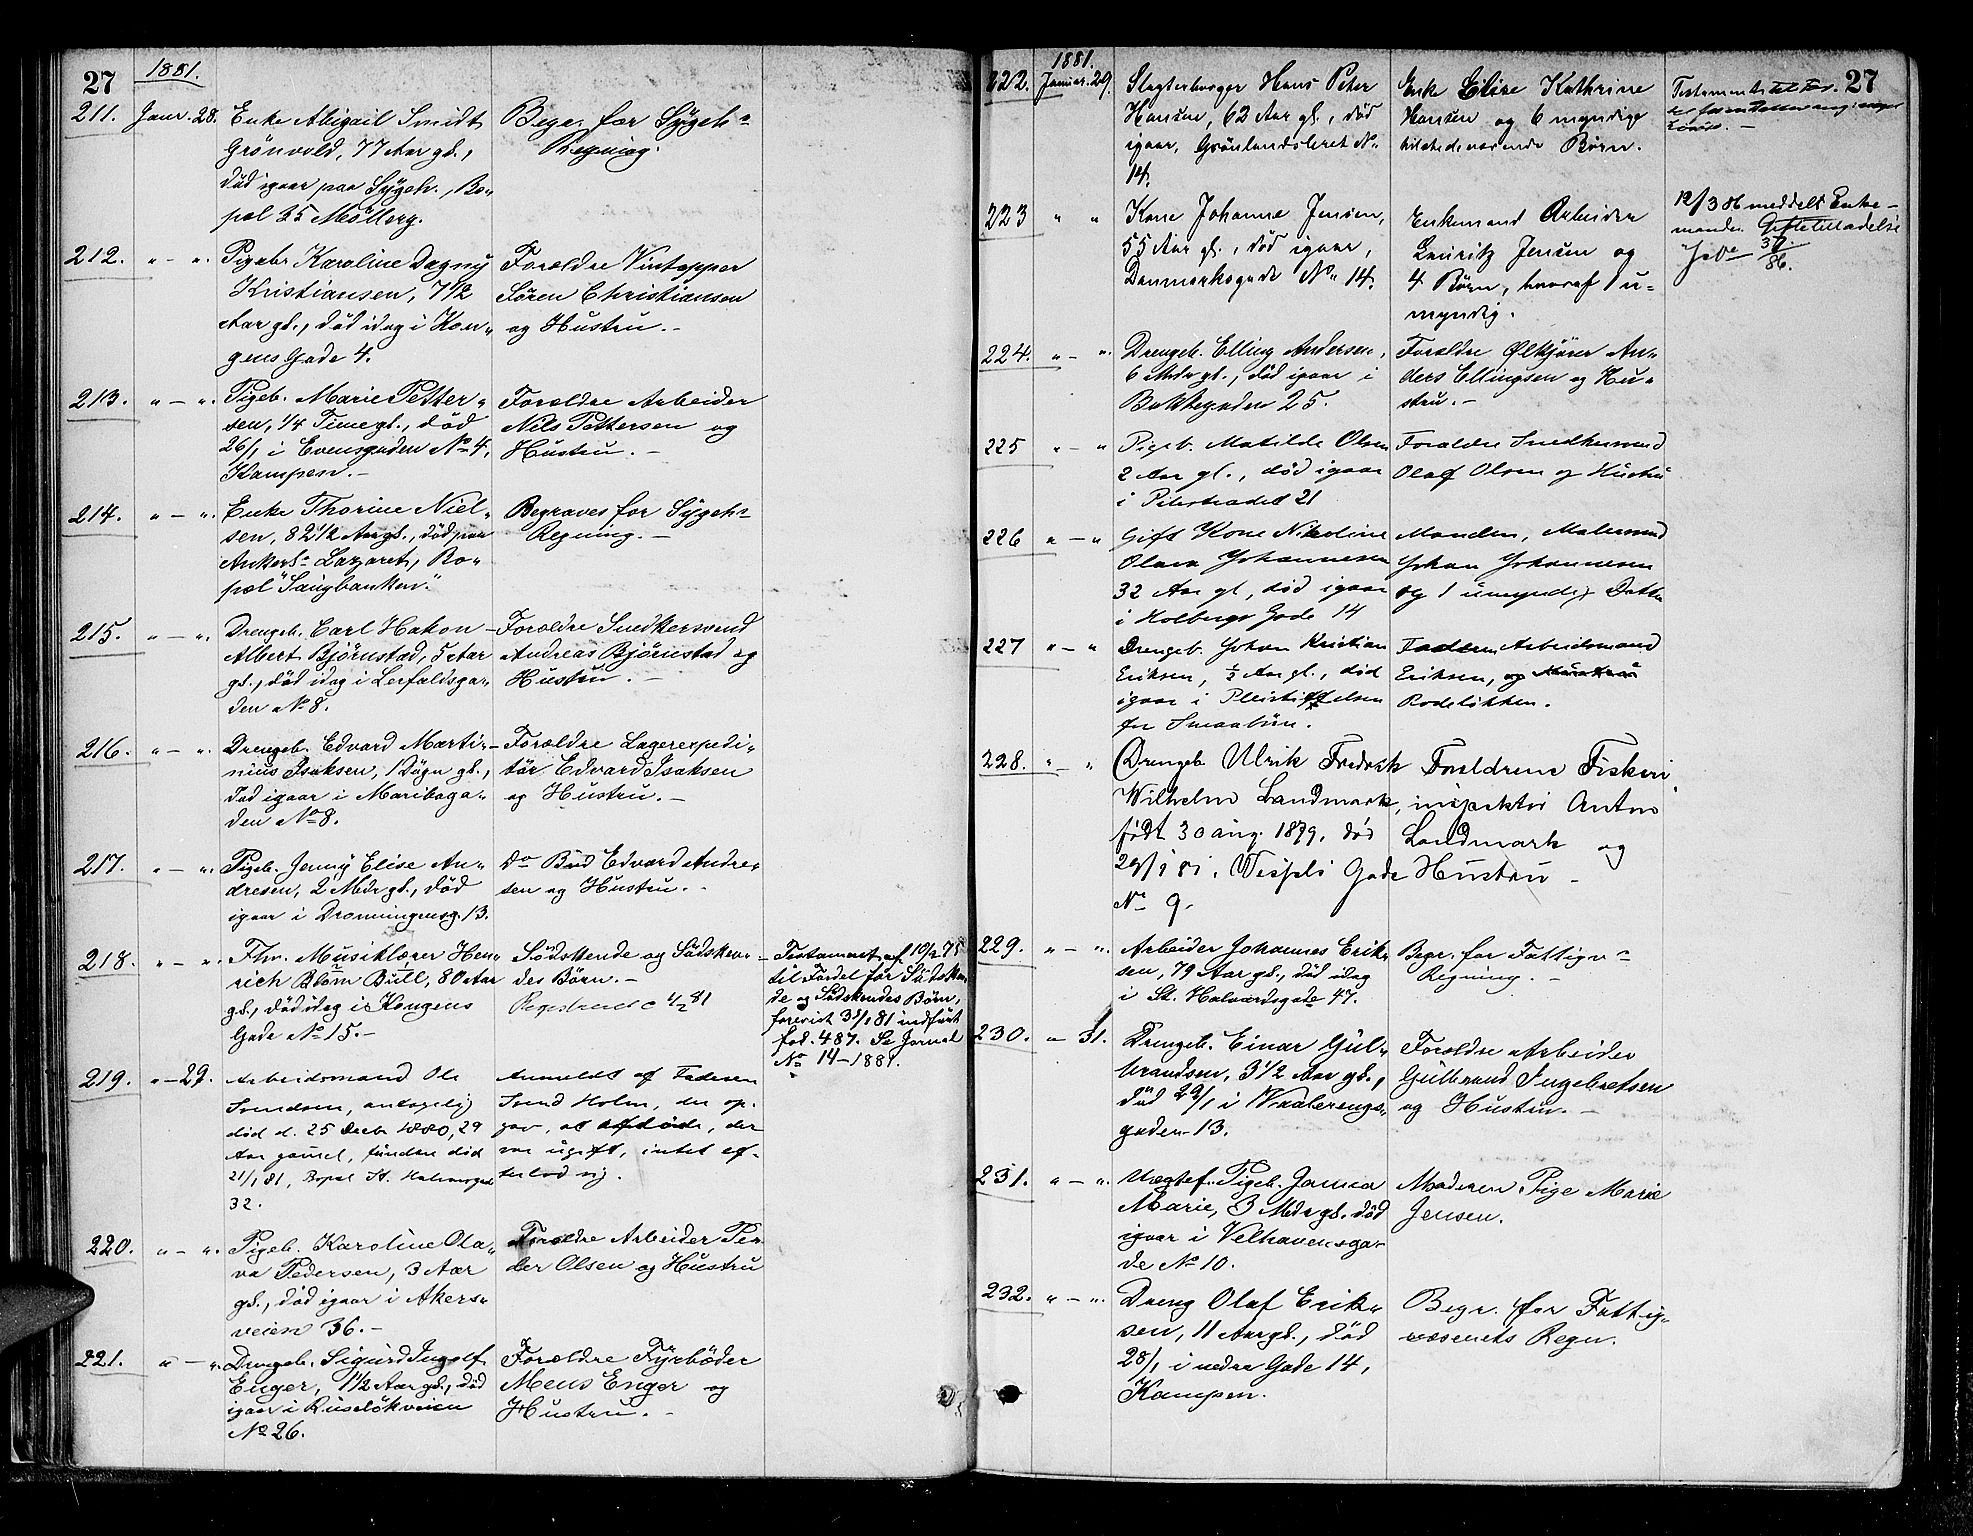 27
1881.
211. Janr. 28. Enke Abigail Smidt
Grönvold, 77 Aar gl.,
död igaar paa Sygeh., Bo-
pæl 35 Möllerg.
Begr. for Sygehs
Regning.
212. " - " Pigebr Karoline Dagny
Kristiansen, 7 1/2
Aar gl., död idag i Kon-
gens Gade 4.
Forældre Vintapper
Sören Christiansen
og Hustru. -
213. " - " Pigeb. Marie Petter-
sen, 1/4 Time gl., död
26/1 i Evensgaden No 4,
Kampen. -
Forældre Arbeider
Nils Pettersen og
Hustru. -
214. " - " Enke Thorine Niel-
sen, 82 1/2 Aar gl., död paa
Ankerls Lazaret, Bo-
pæl "Saugbanken".
Begraves for Sygehs
Regning. -
215. " - " Drengeb. Carl Hakon
Albert Björnstad, 5 Aar
gl., död idag i Lerfaldsga-
den No 8.
Forældre Snedkersvend
Andreas Björnstad og
Hustru. -
216. " - " Drengeb. Edvard Marti-
nius Isaksen, 1 Dögn gl.,
död igaar i Mariboga-
den No 8.
Forældre Lagerexpedi-
tör Edvard Isaksen
og Hustru. -
217. " - " Pigeb. Jenny Elise An-
dresen, 2 Mdr gl., död
igaar i Dronningensg. 13.
Do Bud Edvard Andre-
sen og Hustru. -
218. " - " Fhv. Musiklærer Hen-
rich Blom Bull, 80 Aar
gl., död idag i Kongens
Gade No 15. -
Södskende og Södsken-
des Börn. -
4/2 81
Testament af 10/2 75
til Fordel for Södsken-
de og Södskendes Börn,
forevist 31/1 81 indfört
fol. 487. Se Jornal
No 14-1881.
219. " - 29. Arbeidsmand Ole
Svendsen, antagelig
död d. 25 Decb 1880, 29
Aar gamel, funden död
21/1 81, Bopæl St. Halvardsgd
32.
Anmeldt af Faderen
Svend Holm, der op-
gav, at afdöde, der
var ugift, intet ef-
terlod sig.
220. " - " Pigeb. Karoline Ola-
va Pedersen, 3 Aar
gl., död igaar i Akers-
veien 36. -
Forældre Arbeider Pe-
der Olsen og Hustru
221. " - " Drengeb. Sigurd Ingolf
Enger, 1 1/2 Aar gl., död
igaar i Ruselökveien
No 26.
Forældre Fyrböder
Mens Enger og
Hustru. -
27
1881.
222. Januar. 29. Slagterborger Hans Peter
Hansen, 62 Aar gl., död
igaar, Grönlandsleret No
14.
Enke Elise Kathrine
Hansen og 6 myndige
tilstedeværende Börn.
Testament
223 " " Kone Johanne Jensen,
55 Aar gl., död igaar,
Danmarksgade No 14.
Enkemand Arbeider
Lauritz Jensen og
4 Börn, hvoraf 1 u-
myndig.
12/3 86 meddelt Enke-
manden Giftetilladelse
37/86.
224. " - " Drengeb. Elling Andersen,
6 Mdr gl., död igaar i
Bakkegaden 25.
Forældre Ølkjörer An-
ders Ellingsen og Hu-
stru. -
225 " - " Pigeb. Matilde Olsen
2 Aar gl., död igaar
i Pilestrædet 21
Forældre Snedkersvend
Olaf Olsen og Hustru
226 " - " Gift Kone Nikoline
Olava Johannesen
32 Aar gl, död igaar
i Holbergs Gade 14
Manden, Malersvend
Johan Johannesen
og 1 umyndig Datter
227 " - " Drengeb. Johan Kristian
Eriksen, 1/2 Aar gl., död
igaar i Pleiestiftelsen
for Smaabörn.
Faderen Arbeidsmand
Eriksen, og Hustru
Rodelökken.
228. " - " Drengeb. Ulrik Fredrik
Wilhelm Landmark,
födt 30 aug. 1879, död
29/1 81, Wessels Gade
No 9.
Forældrene Fiskeri-
inspektör Anton
Landmark og
Hustru -
229. " - " Arbeider Johannes Erik-
sen, 79 Aar gl., död idag
i St. Halvardsgade 47.
Begr. for Fattigvs
Regning -
230. " 31. Drengeb. Einar Gul-
brandsen, 3 1/2 Aar gl.,
död 29/1 i Waalerengs-
gaden 13.
Forældre Arbeider
Gulbrand Ingebretsen
og Hustru. -
231. " - " Uægtef. Pigeb. Janna
Marie, 3 Mdr gl. död
igaar i Velhavensga-
de No 10.
Moderen Pige Marie
Jensen.
232. " - " Dreng Olaf Erik-
sen, 11 Aar gl., död
28/1 i nedre Gade 14,
Kampen.
Begr. for Fattig-
væsenets Regn.
27